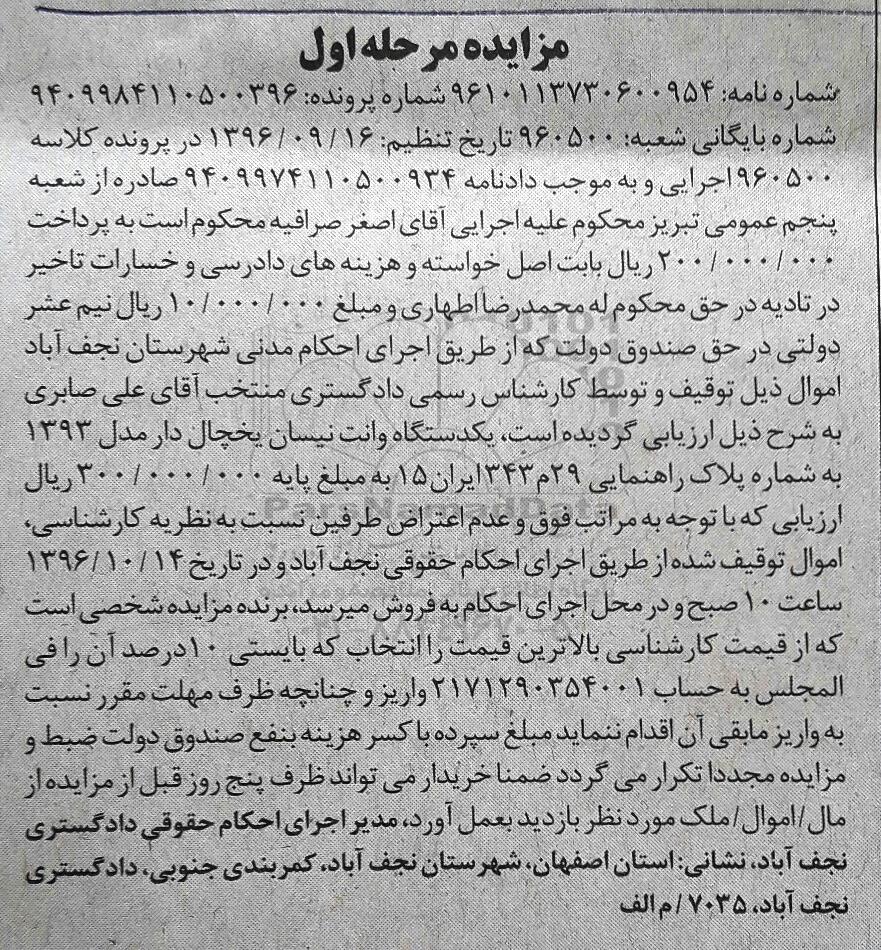 مزایده مرحله اول
شماره نامه: ۹۶۱۰۱۱۳۷۳۰۶۰۰۹۵۴ شماره پرونده: ۹۴۰۹۹۸۴۱۱۰۵۰۰۳۹۶
شماره بایگانی شعبه: ۹۶۰۵۰۰ تاریخ تنظیم: ۱۳۹۶/۰۹/۱۶ در پرونده کلاسه
۹۶۰۵۰۰ اجرایی و به موجب دادنامه ۹۴۰۹۹۷۴۱۱۰۵۰۰۹۳۴ صادره از شعبه
پنجم عمومی تبریز محکوم علیه اجرایی آقای اصغر صرافیه محکوم است به پرداخت
۲۰۰/۰۰۰/۰۰۰ ریال بابت اصل خواسته و هزینه های دادرسی و خسارات تاخیر
در تادیه در حق محکوم له محمدرضا اطهاری و مبلغ ۱۰/۰۰۰/۰۰۰ ریال نیم عشر
دولتی در حق صندوق دولت که از طریق اجرای احکام مدنی شهرستان نجف آباد
اموال ذیل توقیف و توسط کارشناس رسمی دادگستری منتخب آقای علی صابری
به شرح ذیل ارزیابی گردیده است، یکدستگاه وانت نیسان یخچال دار مدل ۱۳۹۳
به شماره پلاک راهنمایی ۲۹م۳۴۳ایران۱۵ به مبلغ پایه ۳۰۰/۰۰۰/۰۰۰ ریال
ارزیابی که با توجه به مراتب فوق و عدم اعتراض طرفین نسبت به نظریه کارشناسی،
اموال توقیف شده از طریق اجرای احکام حقوقی نجف آباد و در تاریخ ۱۳۹۶/۱۰/۱۴
ساعت ۱۰ صبح و در محل اجرای احکام به فروش میرسد، برنده مزایده شخصی است
که از قیمت کارشناسی بالاترین قیمت را انتخاب که بایستی ۱۰درصد آن را فی
المجلس به حساب ۲۱۷۱۲۹۰۳۵۴۰۰۱ واریز و چنانچه ظرف مهلت مقرر نسبت
به واریز مابقی آن اقدام ننماید مبلغ سپرده با کسر هزینه بنفع صندوق دولت ضبط و
مزایده مجددا تکرار می گردد ضمنا خریدار می تواند ظرف پنج روز قبل از مزایده از
مال/اموال/ملک مورد نظر بازدید بعمل آورد، مدیر اجرای احکام حقوقی دادگستری
نجف آباد، نشانی: استان اصفهان، شهرستان نجف آباد، کمربندی جنوبی، دادگستری
نجف آباد، ۷۰۳۵/م الف
ParsNamadData